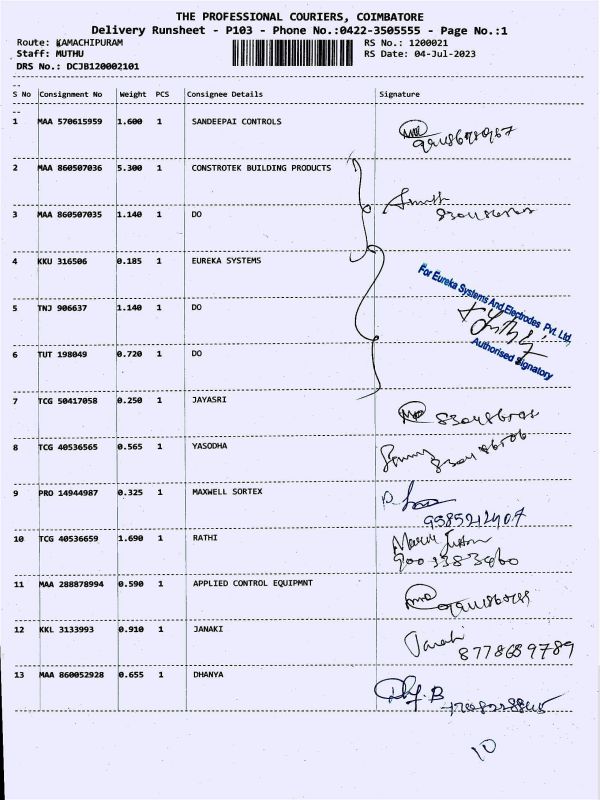 THE PROFESSIONAL COURIERS, COIMBATORE
Delivery Runsheet - P103 - Phone No.:0422-3505555 - Page No.:1
Route: KAMACHIPURAM RS No.: 1200021
Staff: MUTHU RS Date: 04-Jul-2023
DRS No.: DCJB120002101
S No Consignment No Weight PCS Consignee Details Signature
1 MAA 570615959 1.600 1 SANDEEPAI CONTROLS
2 MAA 860507036 5.300 1 CONSTROTEK BUILDING PRODUCTS
3 MAA 860507035 1.140 1 DO
4 KKU 316506 0.185 1 EUREKA SYSTEMS
For Eureka Systems And Electrodes Pvt. Ltd.
5 TNJ 906637 1.140 1 DO
6 TUT 198049 0.720 1 DO
Authorised Signatory
7 TCG 50417058 0.250 1 JAYASRI
8 TCG 40536565 0.565 1 YASODHA
9 PRO 14944987 0.325 1 MAXWELL SORTEX
9585212407
10 TCG 40536659 1.690 1 RATHI
11 MAA 288878994 0.590 1 APPLIED CONTROL EQUIPMNT
12 KKL 3133993 0.910 1 JANAKI
Janaki
8778689789
13 MAA 860052928 0.655 1 DHANYA
10